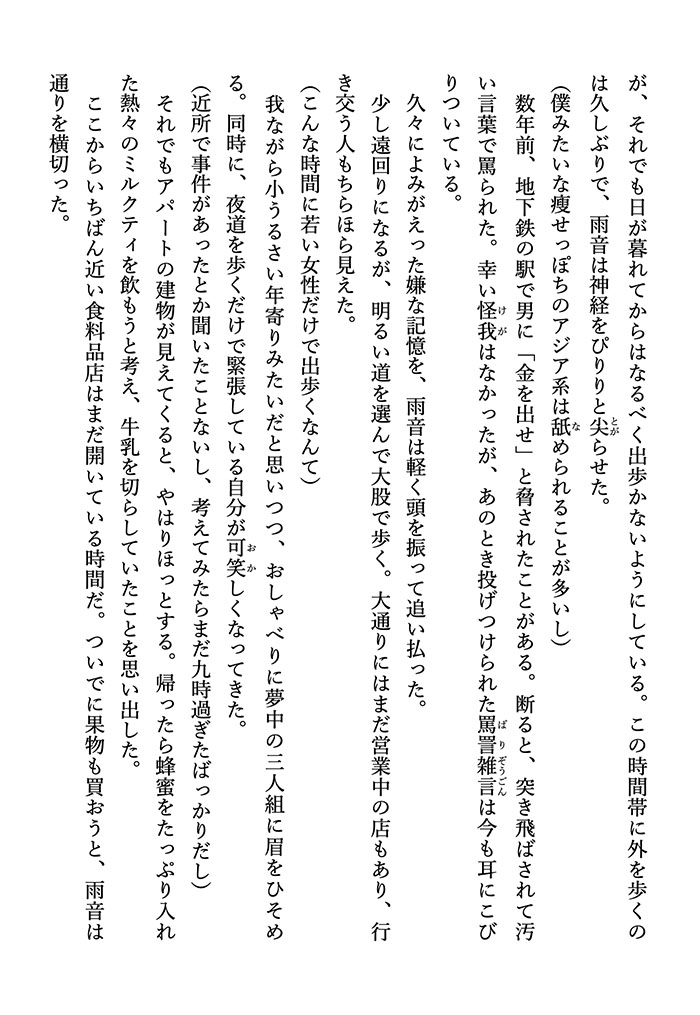 が、それでも日が暮れてからはなるべく出歩かないようにしている。この時間帯に外を歩くの
は久しぶりで、雨音は神経をぴりりと尖らせた。
(僕みたいな痩せっぽちのアジア系は舐められることが多いし)
数年前、地下鉄の駅で男に「金を出せ」と脅されたことがある。断ると、突き飛ばされて汚
い言葉で罵られた。幸い怪我はなかったが、あのとき投げつけられた罵詈雑言は今も耳にこび
りついている。
久々によみがえった嫌な記憶を、雨音は軽く頭を振って追い払った。
少し遠回りになるが、明るい道を選んで大股で歩く。大通りにはまだ営業中の店もあり、行
き交う人もちらほら見えた。
(こんな時間に若い女性だけで出歩くなんて)
我ながら小うるさい年寄りみたいだと思いつつ、おしゃべりに夢中の三人組に眉をひそめ
る。同時に、夜道を歩くだけで緊張している自分が可笑しくなってきた。
(近所で事件があったとか聞いたことないし、考えてみたらまだ九時過ぎたばっかりだし)
それでもアパートの建物が見えてくると、やはりほっとする。帰ったら蜂蜜をたっぷり入れ
た熱々のミルクティを飲もうと考え、牛乳を切らしていたことを思い出した。
ここからいちばん近い食料品店はまだ開いている時間だ。ついでに果物も買おうと、雨音は
通りを横切った。